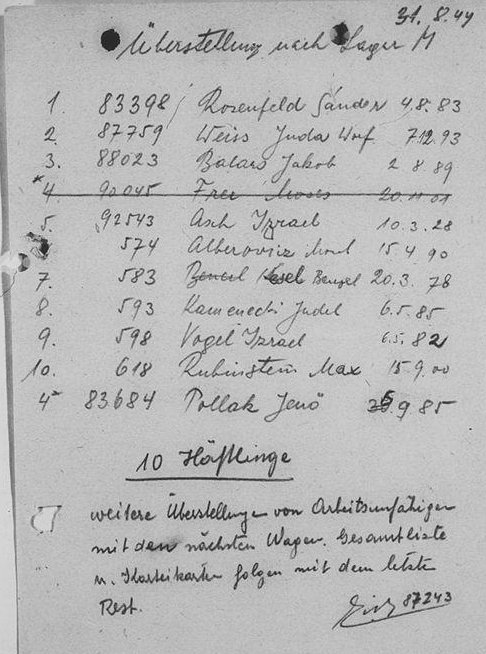 31.8.44
Überstellung nach Lager M
1. 83398 Rosenfeld Sándor 4.8.83
2. 87759 Weiss Juda Wolf 7.12.93
3. 88023 Jakob 2 8.89
4. 90045 Frei Moses 20.11.01
5. 92543 Asch Izrael 10.3.28
574 15.4.90
7. 583 Benzel 20.3.78
8. 593 Kamenecki Judel 6.5.85
9. 598 Vogel Izrael 6.5.82
10. 618 Rubinstein Max 15.9.00
4 83684 Pollak Jenö 9 85
10 Häftlinge
weitere Überstellungen von Arbeitsunfähigen
mit den nächsten Wagen. Gesamtliste
u. Karteikarten folgen mit dem letzte
Rest.
87243